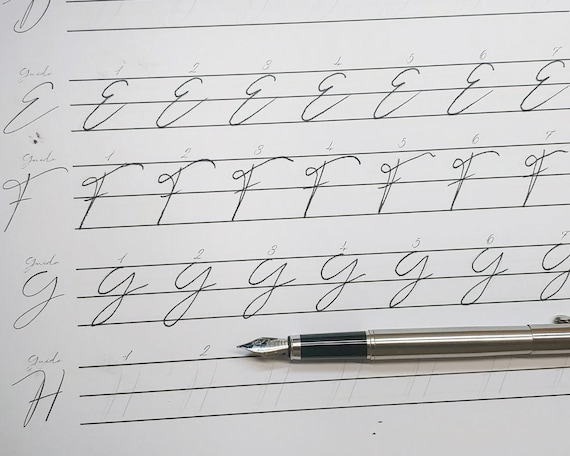 D
Guide 1 2 3 4 5 6 7
E E E E E E E E
Guide 1 2 3 4 5 6 7
F F F F F F F F
Guide 1 2 3 4 5 6 7
G G G G G G G G
Guide 1 2
H H H